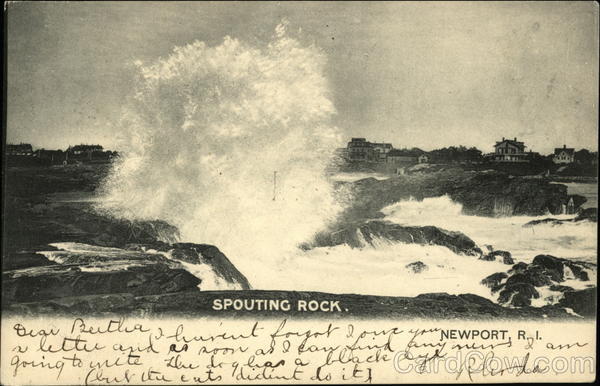 SPOUTING ROCK.
NEWPORT, R. I.
Dear Bertha I haven't forgot I owe you
a letter and as soon as I can find any news I am
going to write. The dog has a black eye
(but the cats didn't do it)
CardCow.com